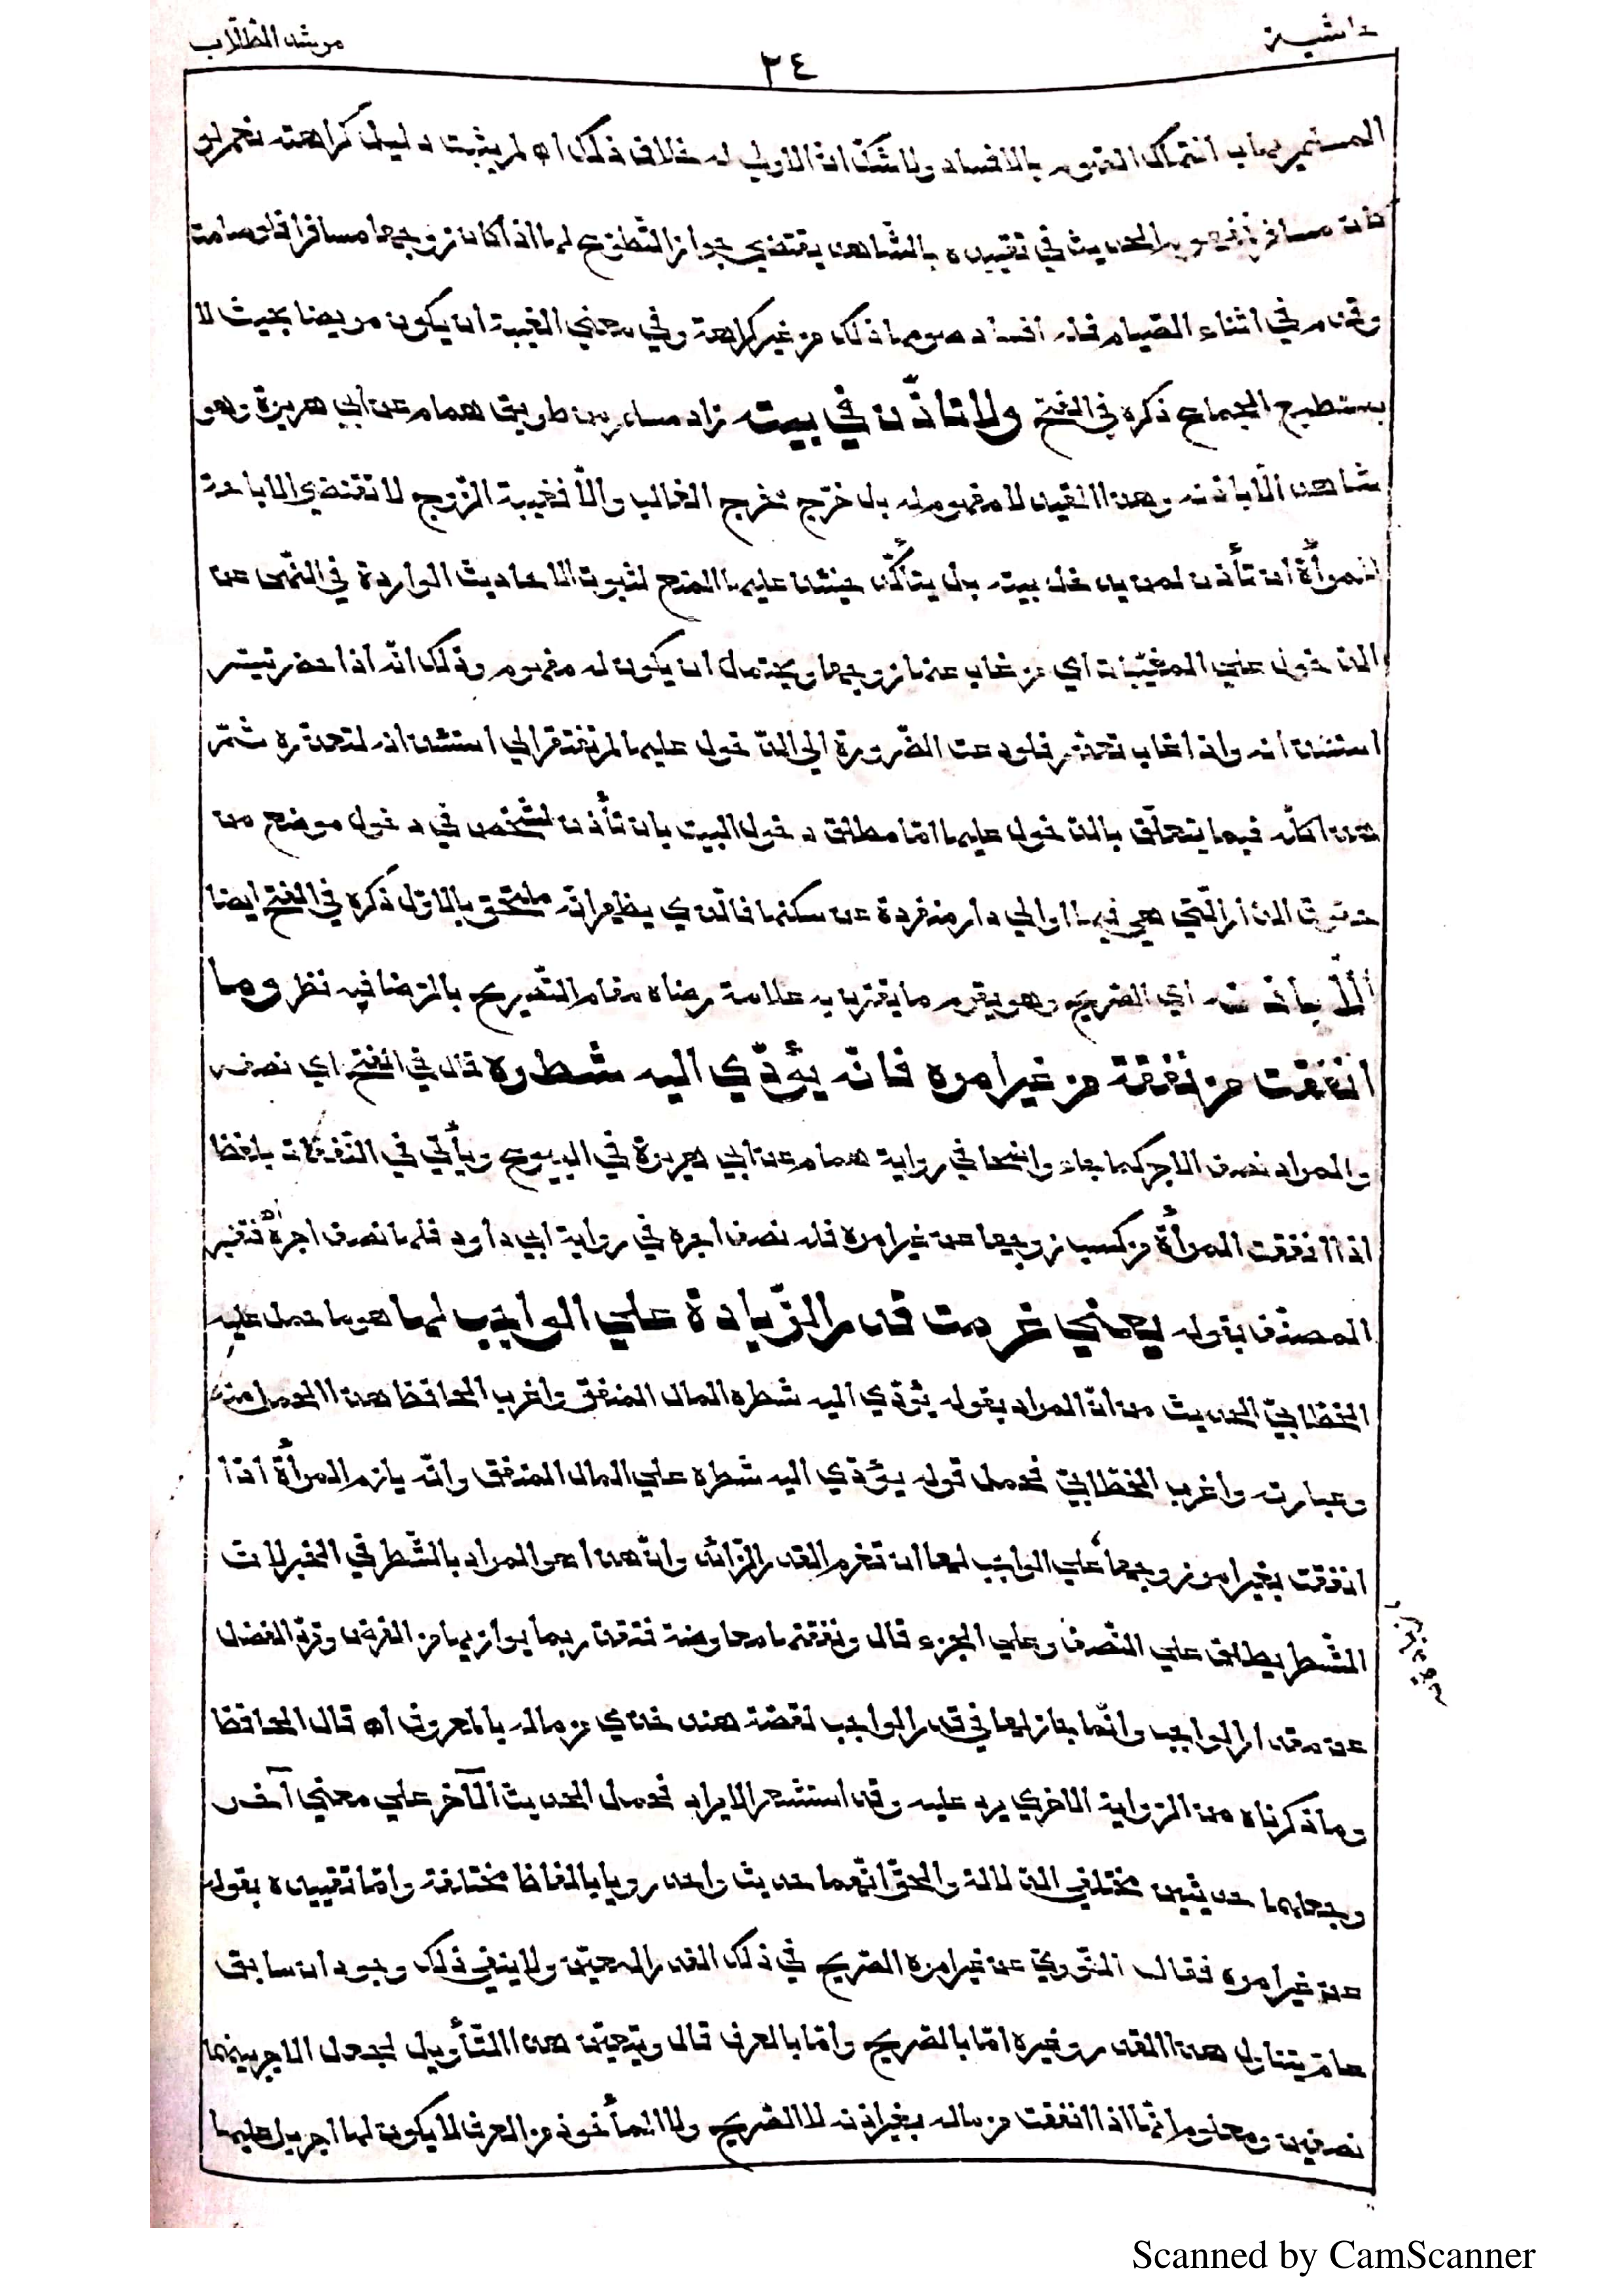 حاشية
٣٤
مرشد الطلاب
المسلم يهاب انتهاك الصوم بالافساد ولا شك ان الاولى له خلاف ذلك اه لم يثبت دليل كراهته نعم لو
كان مسافرا فمفهوم الحديث في تقييده بالشاهد يقتضي جواز التطوع لها اذا كان زوجها مسافرا فلو صامت
وقدم في اثناء الصيام فله افساد صومها ذلك من غير كراهة وفي معنى الغيبة ان يكون مريضا بحيث لا
يستطيع الجماع ذكره في الفتح ولا تأذن في بيته زاد مسلم من طريق همام عن أبي هريرة وهو
شاهد الّا باذنه وهذا القيد لا مفهوم له بل خرّج مخرج الغالب والّا فغيبة الزّوج لا تقتضي الاباحة
للمرأة ان تأذن لمن يدخل بيته بل يتأكّد حينئذ عليها المنع لثبوت الاحاديث الواردة في النّهي عن
الدّخول علي المغيّبات اي من غاب عنها زوجها ويحتمل ان يكون له مفهوم وذلك انّه اذا حضر تيسّر
استئذانه واذا غاب تعذّر فلو دعت الضّرورة الي الدّخول عليها لم تفتقر الي استئذانه لتعذّره ثمّ
هذا كلّه فيما يتعلّق بالدّخول عليها امّا مطلق دخول البيت بان تأذن لشخص في دخول موضع من
حقوق الدّار الّتي هي فيها او الي دار منفردة عن سكنها فالّذي يظهر انّه ملتحق بالاوّل ذكره في الفتح ايضا
الّا بإذنه اي الصّريح وهو يقوم ما يقترن به علامة رضاه مقام التّصريح بالرّضا فيه نظر وما
انفقت من نفقة من غير امره فانّه يؤدّي اليه شطره قال في الفتح اي نصفه
والمراد نصف الاجر كما جاء واضحا في رواية همام عن ابي هريرة في البيوع ويأتي في النّفقات بلفظ
اذا انفقت المرأة من كسب زوجها عن غير امره فله نصف اجره في رواية ابي داود فلها نصف اجره اه فتفسير
المصنّف بقوله يعني غرمت قدر الزّيادة علي الواجب لها هو ما حمل عليه
الخطّابيّ الحديث من انّ المراد بقوله يؤدّي اليه شطره المال المنفق واغرب الحافظ هذا الحمل منه
وعبارته واغرب الخطّابيّ فحمل قوله يؤدّي اليه شطره علي المال المنفق وانّه يلزم المرأة اذا
انفقت بغير امر زوجها علي الواجب لها ان تغرم القدر الزّائد وانّ هذا هو المراد بالشّطر في الخبر لانّ
الشّطر يطلق علي النّصف وعلي الجزء قال ونفقتها معاوضة فتقدّر بما يوازيها من الفرض وتردّ الفضل
عن مقدار الواجب وانّما جاز لها في قدر الواجب لقصّة هند خذي من ماله بالمعروف اه قال الحافظ
وما ذكرناه من الرّواية الاخري يرد عليه وقد استشعر الايراد فحمل الحديث الآخر علي معني آخر
وجعلهما حديثين مختلفي الدّلالة والحقّ انّهما حديث واحد رويا بالفاظ مختلفة وامّا تقييده بقوله
عن غير امره فقال النّوويّ عن غير امره الصّريح في ذلك القدر المعيّن ولا ينفي ذلك وجود اذن سابق
عامّ يتناول هذا القدر وغيره امّا بالصّريح وامّا بالعرف قال ويتعيّن هذا التّأويل لجعل الاجر بينهما
نصفين ومعلوم انّها اذا انفقت من ماله بغير اذنه لا الصّريح ولا المأخوذ من العرف لا يكون لها اجر بل عليها